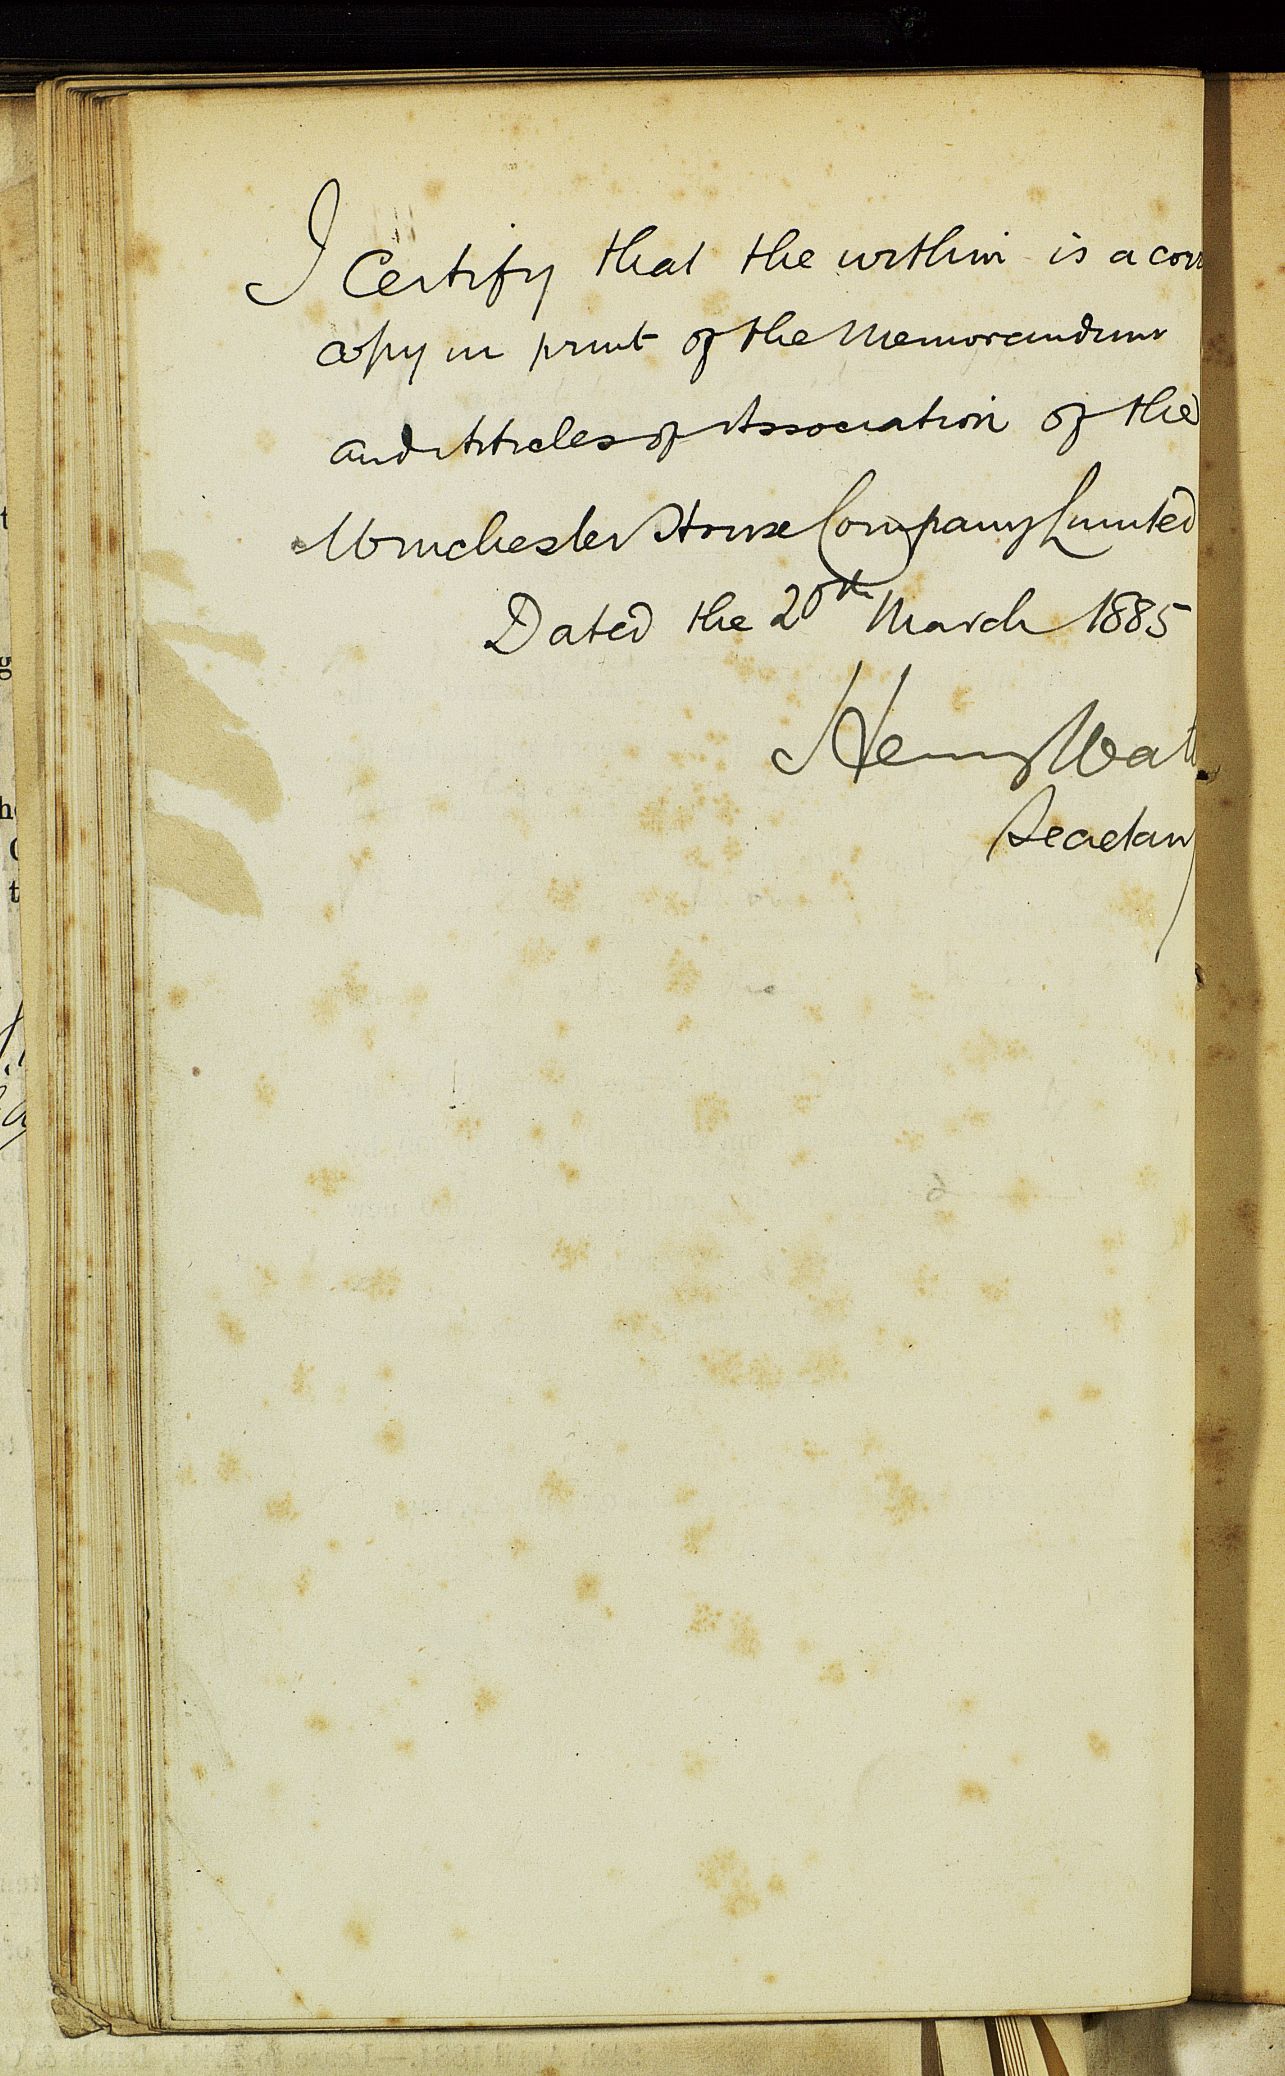 I Certify that the within is a corr
copy in print of the Memorandum
and Articles of Association of the
Winchester House Company Limited
Dated the 20th March 1885
Henry Watt
Secretary